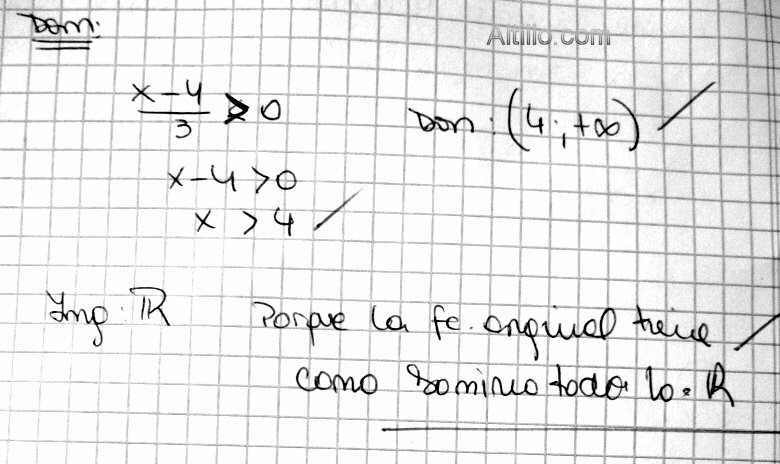 Dom:
Altillo.com
x-4/3 > 0
Dom: (4; +∞)
x-4>0
x > 4
Img: ℝ Porque la fc. original tiene
como dominio todo lo. ℝ